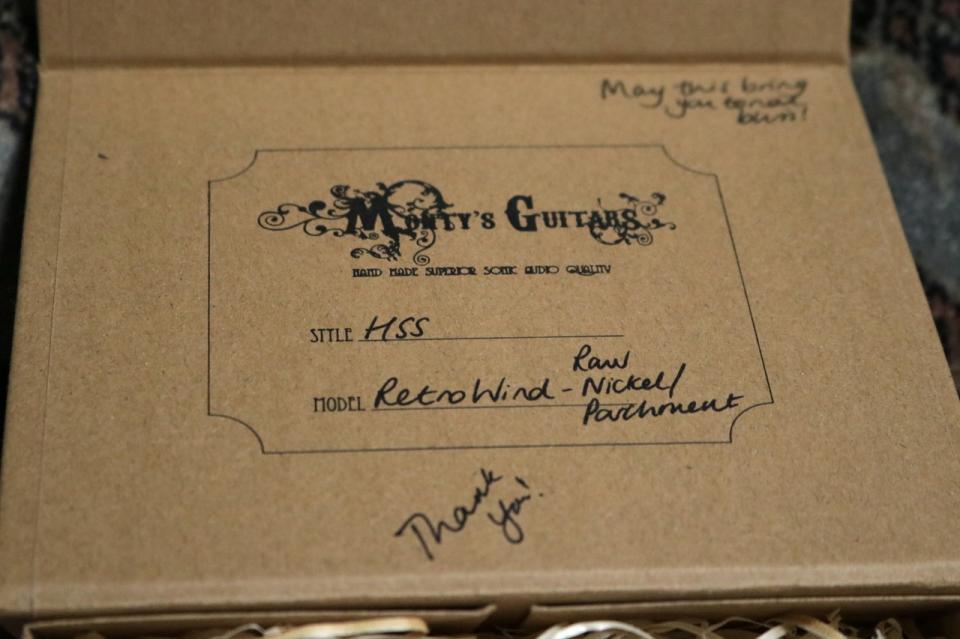 May this bring
you tonal
bliss!
Monty's Guitars
HAND MADE SUPERIOR SONIC AUDIO QUALITY
STYLE HSS
MODEL RetroWind - Raw
Nickel/
Parchment
Thank
You!